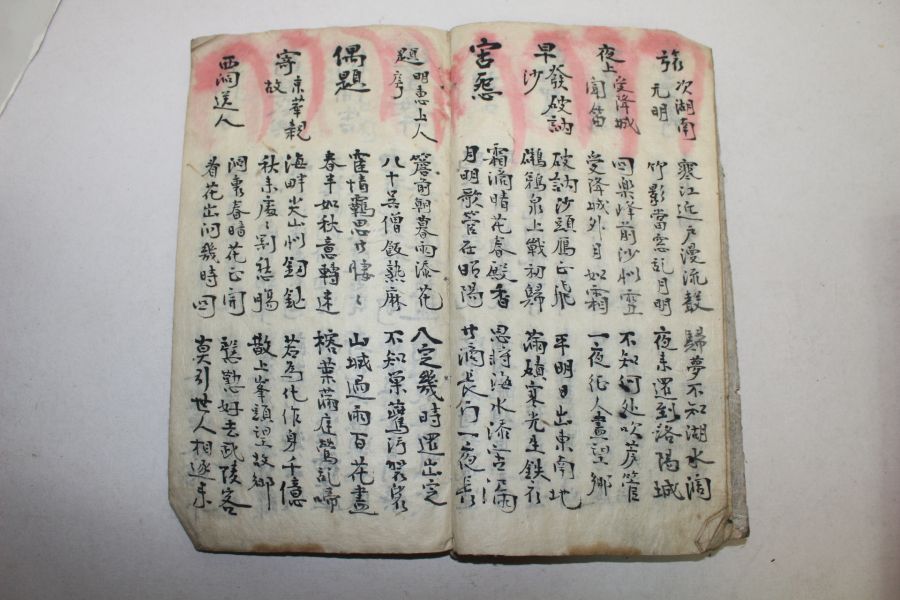 旅次湖南
元明
寒江近戶漫流聲
竹影當窓乱月明
歸夢不知湖水濶
夜来還到洛陽城
夜上受降城
聞笛
回樂峰前沙似雪
受降城外月如霜
不知何处吹芦管
一夜征人盡望鄉
早發破訥
沙
破訥沙頭鴈正飛
鸊鵜泉上戰初歸
平明日出東南地
滿磧寒光生鐵衣
宮怨
霜滴晴花春殿香
月明歌管在昭陽
海水添宮漏
共滴長門一夜長
題明惠上人
房
簷前朝暮雨添花
八十吳僧飯熟麻
入定幾時還出定
不知巢鷰汚袈裟
偶題
宦情羈思共悽々
春半如秋意轉迷
山城過雨百花盡
榕葉滿庭鶯乱啼
寄京華親
故
海畔尖山似釰鋩
秋来處々割愁腸
若為化作身千億
散上峯頭望故鄉
西澗送人
洞裏春晴花正開
看花出洞幾時回
慇懃好去武陵客
莫引世人相逐来